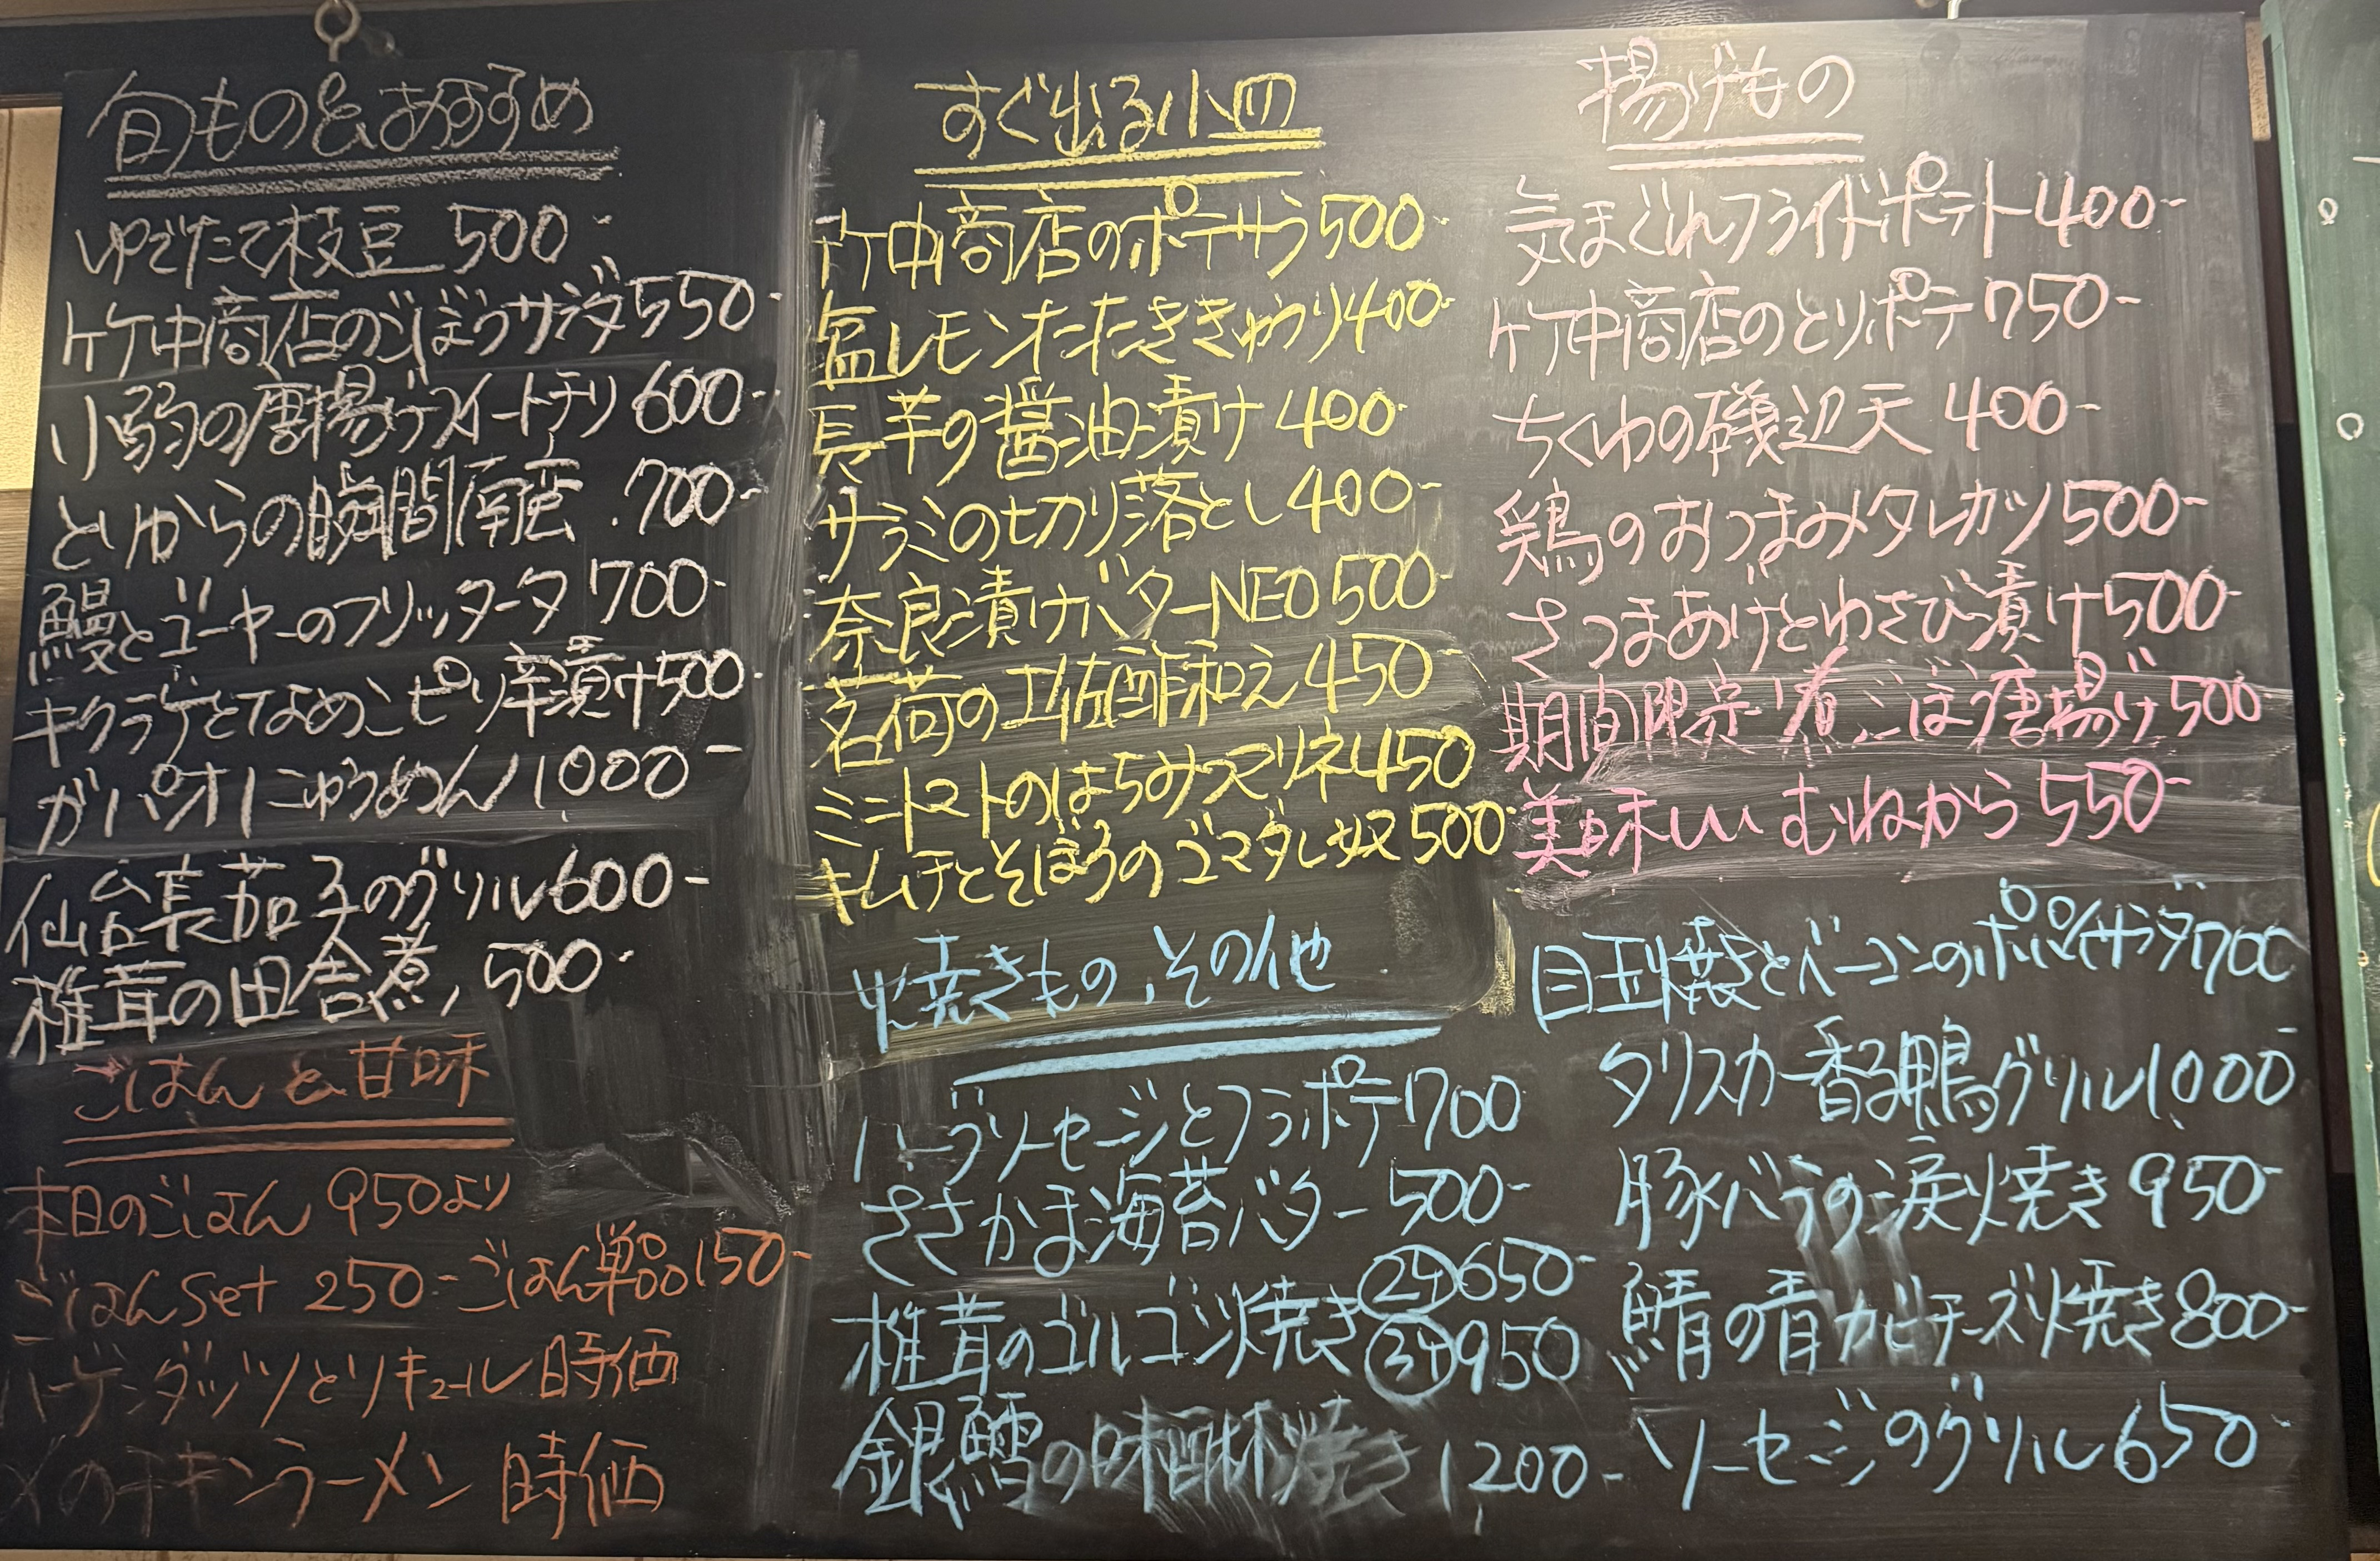 旬もの&おすすめ
ゆでたて枝豆 500-
竹中商店のごぼうサラダ 550-
小鯵の唐揚げスイートチリ 600-
とりからの瞬間南蛮 700-
鰻とゴーヤーのフリッタータ 700-
キクラゲとなめこピリ辛漬け 500-
ガパオにゅうめん 1000-
仙台長茄子のグリル 600-
椎茸の田舎煮 500-
ごはん&甘味
本日のごはん 950より
ごはんset 250- ごはん単品 150-
ハーゲンダッツとリキュール 時価
〆のチキンラーメン 時価
すぐ出る小皿
竹中商店のポテサラ 500-
塩レモンたたききゅうり 400-
長芋の醤油漬け 400-
サラミの切り落とし 400-
奈良漬けバターNEO 500-
茗荷の土佐酢和え 450-
ミニトマトのはちみつマリネ 450
キムチとそぼろのゴマダレ奴 500-
焼きもの、その他
ハーブソーセージとフラポテ 700
ささかま海苔バター 500-
椎茸のゴルゴンゾーラ焼き 2ケ 650-
3ケ 950
銀鱈の味醂焼き 1200-
揚げもの
気まぐれフライドポテト 400-
竹中商店のとりポテ 750-
ちくわの磯辺天 400-
鶏のおつまみタレカツ 500-
さつまあげとわさび漬け 500-
期間限定 煮ごぼう唐揚げ 500
美味しい むねから 550-
目玉焼きとベーコンのポパイサラダ 700
タリスカー香る鴨グリル 1000-
豚バラの涙焼き 950-
鯖の青カビチーズ焼き 800-
ソーセージのグリル 650-